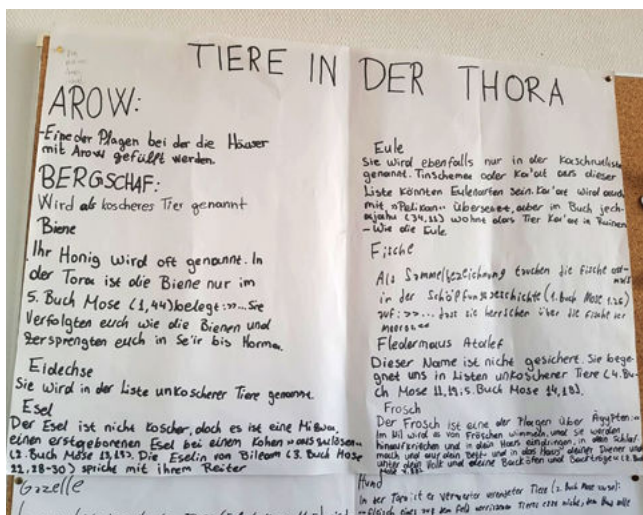 TIERE IN DER THORA
AROW:
-Eine der Plagen bei der die Häuser
mit Arow gefüllt werden.
BERGSCHAF:
Wird als koscheres Tier genannt
Biene
Ihr Honig wird oft genannt. In
der Tora ist die Biene nur im
5. Buch Mose (1,44) belegt: »...Sie
verfolgten euch wie die Bienen und
zersprengten euch in Se'ir bis Horma.
Eidechse
Sie wird in der Liste unkoscherer Tiere genannt
Esel
Der Esel ist nicht koscher, doch es ist eine Mizwa,
einen erstgeborenen Esel bei einem Kohen »auszulösen«
(2. Buch Mose 13,13). Die Eselin von Bileam (3. Buch Mose
22,28-30) spricht mit ihrem Reiter
Gazelle
Eule
Sie wird ebenfalls nur in der Kaschrutliste
genannt. Tinschemet oder Ka'at aus dieser
Liste könnten Eulenarten sein. Ka'at wird auch
mit »Pelikan« übersetzt, aber im Buch Jech-
esjahu (34,11) wohnt das Tier Ka'at in Ruinen
- Wie die Eule
Fische
Als Sammelbezeichnung tauchen die Fische
in der Schöpfungsgeschichte (1. Buch Mose 1,26)
auf: »... dass sie herrschen über die Fische des
Meeres««
Fledermaus Atalef
Dieser Name ist nicht gesichert. Sie beg-
gnet uns in Listen unkoscherer Tiere (4. Bu-
ch Mose 11,19; 5. Buch Mose 14,18).
Frosch
Der Frosch ist eine der Plagen über Ägypten:
Im Nil wird es von Fröschen wimmeln, und sie werden
hinaufkriechen und in dein Haus eindringen, in dein Schlaf-
mach und auf dein Bett und in das Haus deiner Diener und
unter dein Volk und deine Backöfen und Backtröge
Hund
In der Tora ist er Verwerter verendeter Tiere (2. Buch Mose